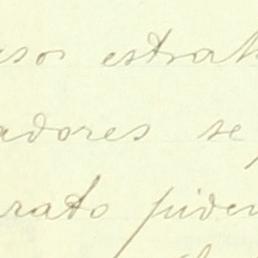 esos estrat
adores se
arato piden